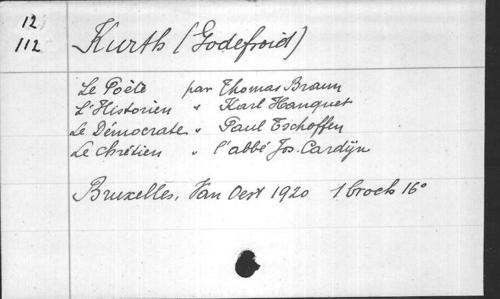 12
112
Kurth (Godefroid)
Le Poète par Thomas Braun
L'Historien " Karl Hanquet
Le Démocrate " Paul Tschoffen
Le Chrétien " l'abbé Jos. Cardijn
Bruxelles, Van Oest 1920 1 broch 16°